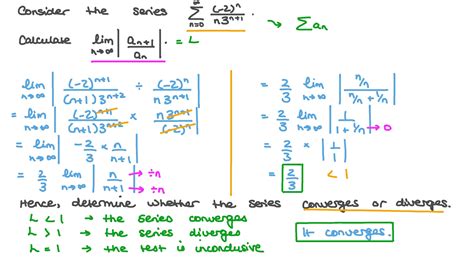 Consider the series $\sum_{n=0}^{\infty} \frac{(-2)^n}{n3^{n+1}}$ → Σ aₙ
Calculate $\lim_{n\to\infty} \left|\frac{a_{n+1}}{a_n}\right|$. = L
$\lim_{n\to\infty} \left|\frac{(-2)^{n+1}}{(n+1)3^{n+2}} \div \frac{(-2)^n}{n3^{n+1}}\right|$
$= \lim_{n\to\infty} \left|\frac{(-2)^{n+1}}{(n+1)3^{n+2}} \times \frac{n3^{n+1}}{(-2)^n}\right|$
$= \lim_{n\to\infty} \left|-\frac{2}{3} \times \frac{n}{n+1}\right|$
$= \frac{2}{3} \lim_{n\to\infty} \left|\frac{n}{n+1}\right|$ → ÷n → ÷n
$= \frac{2}{3} \lim_{n\to\infty} \left|\frac{n/n}{n/n + 1/n}\right|$
$= \frac{2}{3} \lim_{n\to\infty} \left|\frac{1}{1 + 1/n}\right|$ → 0
$= \frac{2}{3} \times \left|\frac{1}{1}\right|$
$= \frac{2}{3}$ < 1
Hence, determine whether the series converges or diverges.
L < 1 → the series converges
L > 1 → the series diverges
L = 1 → the test is inconclusive
It converges.